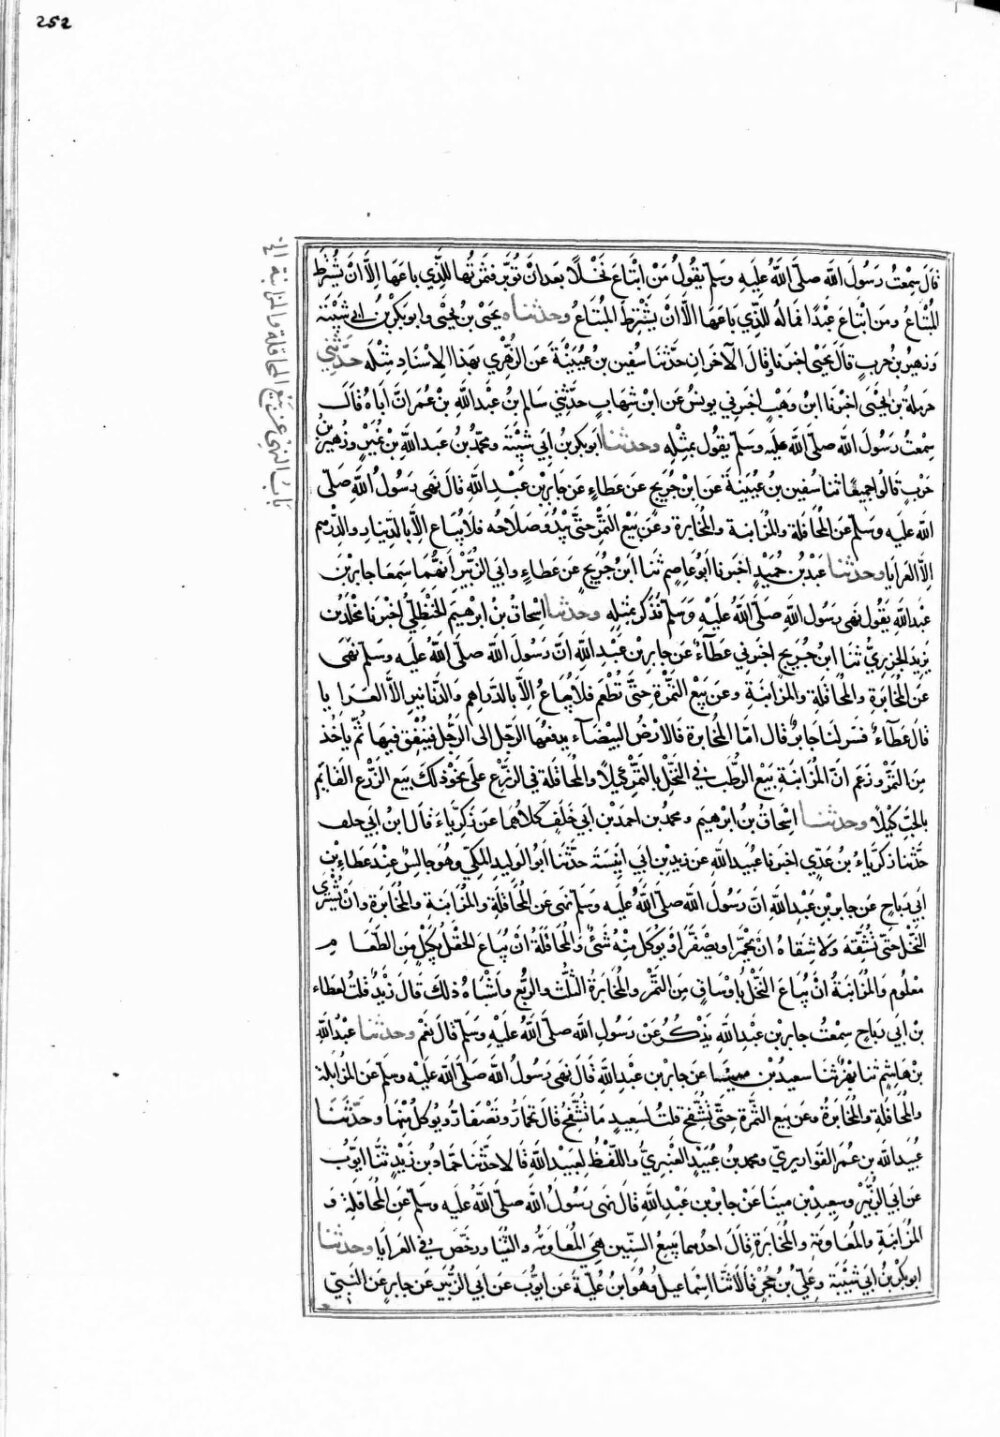 252
باب النهي عن بيع المحاقلة والمزابنة الخ
قَالَ سَمِعْتُ رَسُولَ اللَّه صلَّى اللَّهُ عَلَيْهِ وَسَلَّمَ يَقُولُ مَنْ ابْتَاعَ نَخْلًا بَعْدَ اَنْ تُوَبَّرَ فَثَمَرَتُهَا لِلَّذِي بَاعَهَا اِلَّا اَنْ يَشْتَرِطَ
المُبْتَاعُ ومَن ابْتَاعَ عَبْدًا فَمَالُهُ لِلَّذِي بَاعَهَا اِلَّا اَنْ يَشْتَرِطَ المُبْتَاعُ وحدثناه يَحْيَى بْنُ يَحْيَى وابو بَكْرِ بْنُ اَبي شَيْبَةَ
وَزُهَيْرُ بْنُ حَربٍ قَالَ يَحْيَى اخبَرنَا وقَالَ الآخَرانِ حَدَّثَنَا سُفْين بن عُيَيْنَةَ عَنِ الزُّهْرِي بِهَذَا الاِسْنَادِ مِثْلَه حَدَّثَنِي
حرملة بن يَحْيَى اخبَرنَا ابن وَهْبٍ اخبَرنِي يونسُ عَن ابْنِ شِهَابٍ حَدَّثَنِي سَالِم بنُ عَبْدِ اللَّهِ بْنِ عُمَرَ اَنَّ اَبَاهُ قَالَ
سَمِعْتُ رَسُولَ اللَّه صلَّى اللَّهُ عليه وسَلَّمَ يَقُول بِمِثْلِه وحدثنا ابو بكر بن ابي شَيْبَةَ ومحمَّدُ بنُ عبد اللَّهِ بْنِ نُمَيْرٍ وزُهَيْرُ بْنُ
حَرْبٍ قَالوا جَميعًا ثنا سُفين بن عُيَيْنَةَ عَنِ ابْنِ جُرَيجٍ عَن عَطَاءٍ عَن جَابِر بْنِ عَبْدِ اللَّهِ قَالَ نَهَى رَسُولُ اللَّهِ صَلَّى
اللَّه عليه وسَلَّم عَنِ المُحَاقَلَةِ والمُزَابَنَةِ والمُخَابَرَةِ وعَن بَيْعِ الثَّمَرِ حَتَّى يَبْدُوَ صَلَاحُه فَلَا يُبَاع اِلَّا بِالدِّينَارِ والدِّرْهَمِ
الَّا العَرَايَا وحدثنا عَبْدُ بن حُمَيْدٍ اخبَرنَا ابُو عَاصِمٍ ثَنَا ابنُ جُرَيجٍ عَن عَطَاءٍ وابي الزُّبَيْرِ اَنَّهُمَا سَمِعَا جَابِرَ بْنَ
عَبدِ اللَّهِ يَقُول نَهَى رَسُول اللَّه صَلَّى اللَّهُ عَلَيْهِ وَسَلَّمَ فَذَكَرَ بمثله وحدثنا اسْحَاقُ بْنُ ابْرهِيمَ الحَنْظَلِيُّ اخْبَرنَا مَخْلَدُ بْنُ
يَزِيدَ الجَزَرِيُّ ثَنَا ابنُ جُرَيجٍ اخبَرنِي عَطَآءٌ عَن جَابِرِ بْنِ عَبْدِ اللَّهِ اَنَّ رَسُولَ اللَّه صَلَّى اللَّهُ عليه وسَلَّم نَهَى
عَنِ المُخَابَرَةِ والمُحَاقَلَةِ والمُزَابَنَةِ وعَن بَيْعِ الثَّمَرَةِ حَتَّى تُطْعَمَ فَلَا يُبَاعُ اِلَّا بِالدرَاهِمِ والدَّنَانِيرِ الَّا العَرَايا
قَالَ عَطَآءٌ فَسَّرَ لَنَا جَابِرٌ قَال امَّا المُخَابَرَةُ فَالاَرْضُ البَيْضَآء يدفعُهَا الرَّجُل الى الرَّجُلِ فَيُنْفِقُ فِيهَا ثُمَّ يَأخُذ
مِنَ الثَّمَرِ وزَعَم اَنَّ المُزَابَنَةَ بَيْعُ الرُّطَبِ في النَّخْلِ بِالتَّمْرِ كَيْلًا والمُحَاقَلَةُ في الزَّرْعِ عَلَى نَحْوِ ذلكَ بَيْع الزَّرْعِ القَايِم
بِالحَبِّ كَيْلًا وحدثنا اسْحَاقُ بْنُ ابْرهِيم ومحمدُ بن احمَدَ بْنِ ابي خَلَفٍ كِلاَهُمَا عَن زَكَرِيَّاءَ قَالَ ابن ابي خلف
حَدَّثَنَا زَكَرِيَّاءُ بْنُ عَدِّي اخبَرنَا عُبَيدُ اللَّهِ عَن زَيدِ بْنِ ابي اُنَيْسَةَ حَدَّثَنَا ابُو الوَلِيدِ المَكِّي وهُوَ جَالِسٌ عِنْدَ عَطَاءِ بْنِ
اَبي رَبَاحٍ عَن جَابِرِ بْنِ عَبْدِ اللَّهِ انَّ رَسُولَ اللَّه صلَّى اللَّهُ عليه وسَلَّم نَهَى عَنِ المُحَاقَلَةِ والمُزَابَنَةِ والمُخَابَرَةِ وانْ يشْتَرِي
النَّخْلَ حَتَّى تُشْقِهَ وَالاشقَاهُ اَنْ يَحْمَرَّ او يَصْفَرَّ اَوْ يُوكَلَ مِنْهُ شَئٌ والمُحَاقَلَةُ انْ يُبَاعَ الحَقْلُ بِكَيْلٍ مِنَ الطَّعَامِ
مَعْلُومٍ والمُزَابَنَةُ اَنْ يُبَاعَ النَّخْلُ بِاَوسَاقٍ مِنَ التَّمْرِ والمُخَابَرَةُ الثُّلُثُ والرُّبُعُ واَشْبَاهُ ذلك قَالَ زَيدٌ قُلتُ لِعَطَاءِ
بْنِ ابي رَبَاحٍ سَمِعْتُ جَابِرَ بْنَ عَبْدِ اللَّه يَذْكُرُ عَن رَسُولِ اللَّه صَلَّى اللَّهُ عَلَيْهِ وسَلَّم قَالَ نَعَم وحدثنا عَبْدُ اللَّهِ
بْنُ هَاشِمٍ ثنا بَهْزٌ ثنا سعيدُ بْنُ مِينَا عَن جَابِر بْنِ عَبْدِ اللَّهِ قَالَ نَهَى رَسُولُ اللَّه صَلَّى اللَّهُ عَلَيْهِ وسَلَّم عَنِ المُزَابَنَةِ
والمُحَاقَلَةِ والمُخَابَرَةِ وعَن بَيْعِ الثَّمَرَةِ حَتَّى تُشْقِحَ قلتُ لِسَعِيدٍ مَا تُشْقِحُ قَالَ تَحْمَارُّ وتَصْفَارُّ ويُوكَلُ مِنْهَا وحَدَّثَنَا
عُبَيدُ اللَّه بْنُ عُمَرَ القَوَاريريُّ ومحمدُ بنُ عُبَيْدٍ العَنْبَرِيُّ واللَّفْظُ لِعُبَيدِ اللَّهِ قَالا حَدَّثَنَا حَمَّادُ بْنُ زَيْدٍ ثنَا ايُّوبُ
عَن ابي الزُّبَيْرِ وسعِيدِ بْنِ مينَا عَنْ جَابِرِ بن عَبْدِ اللَّهِ قَالَ نَهَى رَسُولُ اللَّه صَلَّى اللَّهُ عليه وسَلَّم عَنِ المُحَاقَلَةِ وَ
المُزَابَنَةِ والمُعَاوَمَةِ والمُخَابَرَةِ قَالَ احَدُهما بَيْعُ السِّنِينَ هِيَ المُعَاوَمَةُ والثُّنْيَا ورَخَّصَ في العَرَايَا وحدثنا
ابو بَكْرِ بْنُ ابي شَيْبَةَ وعَلِيُّ بْنُ حُجْرٍ قَالَا ثَنَا اِسْمَاعِيلُ وهُوَ ابْنُ عُلَيَّةَ عَن ايوُّبَ عَن ابي الزُّبَيْرِ عَن جَابِرٍ عَنِ النَّبِيِّ